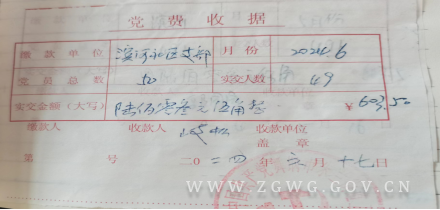 党费收据
缴款单位 滨河社区支部 月份 2024.6
党员总数 50 实交人数 49
实交金额(大写) 陆佰零叁元伍角整 ¥603.50
缴款人 收款人 收款单位
盖章
第 号 二〇二四年六月十七日
WWW.ZGWG.GOV.CN